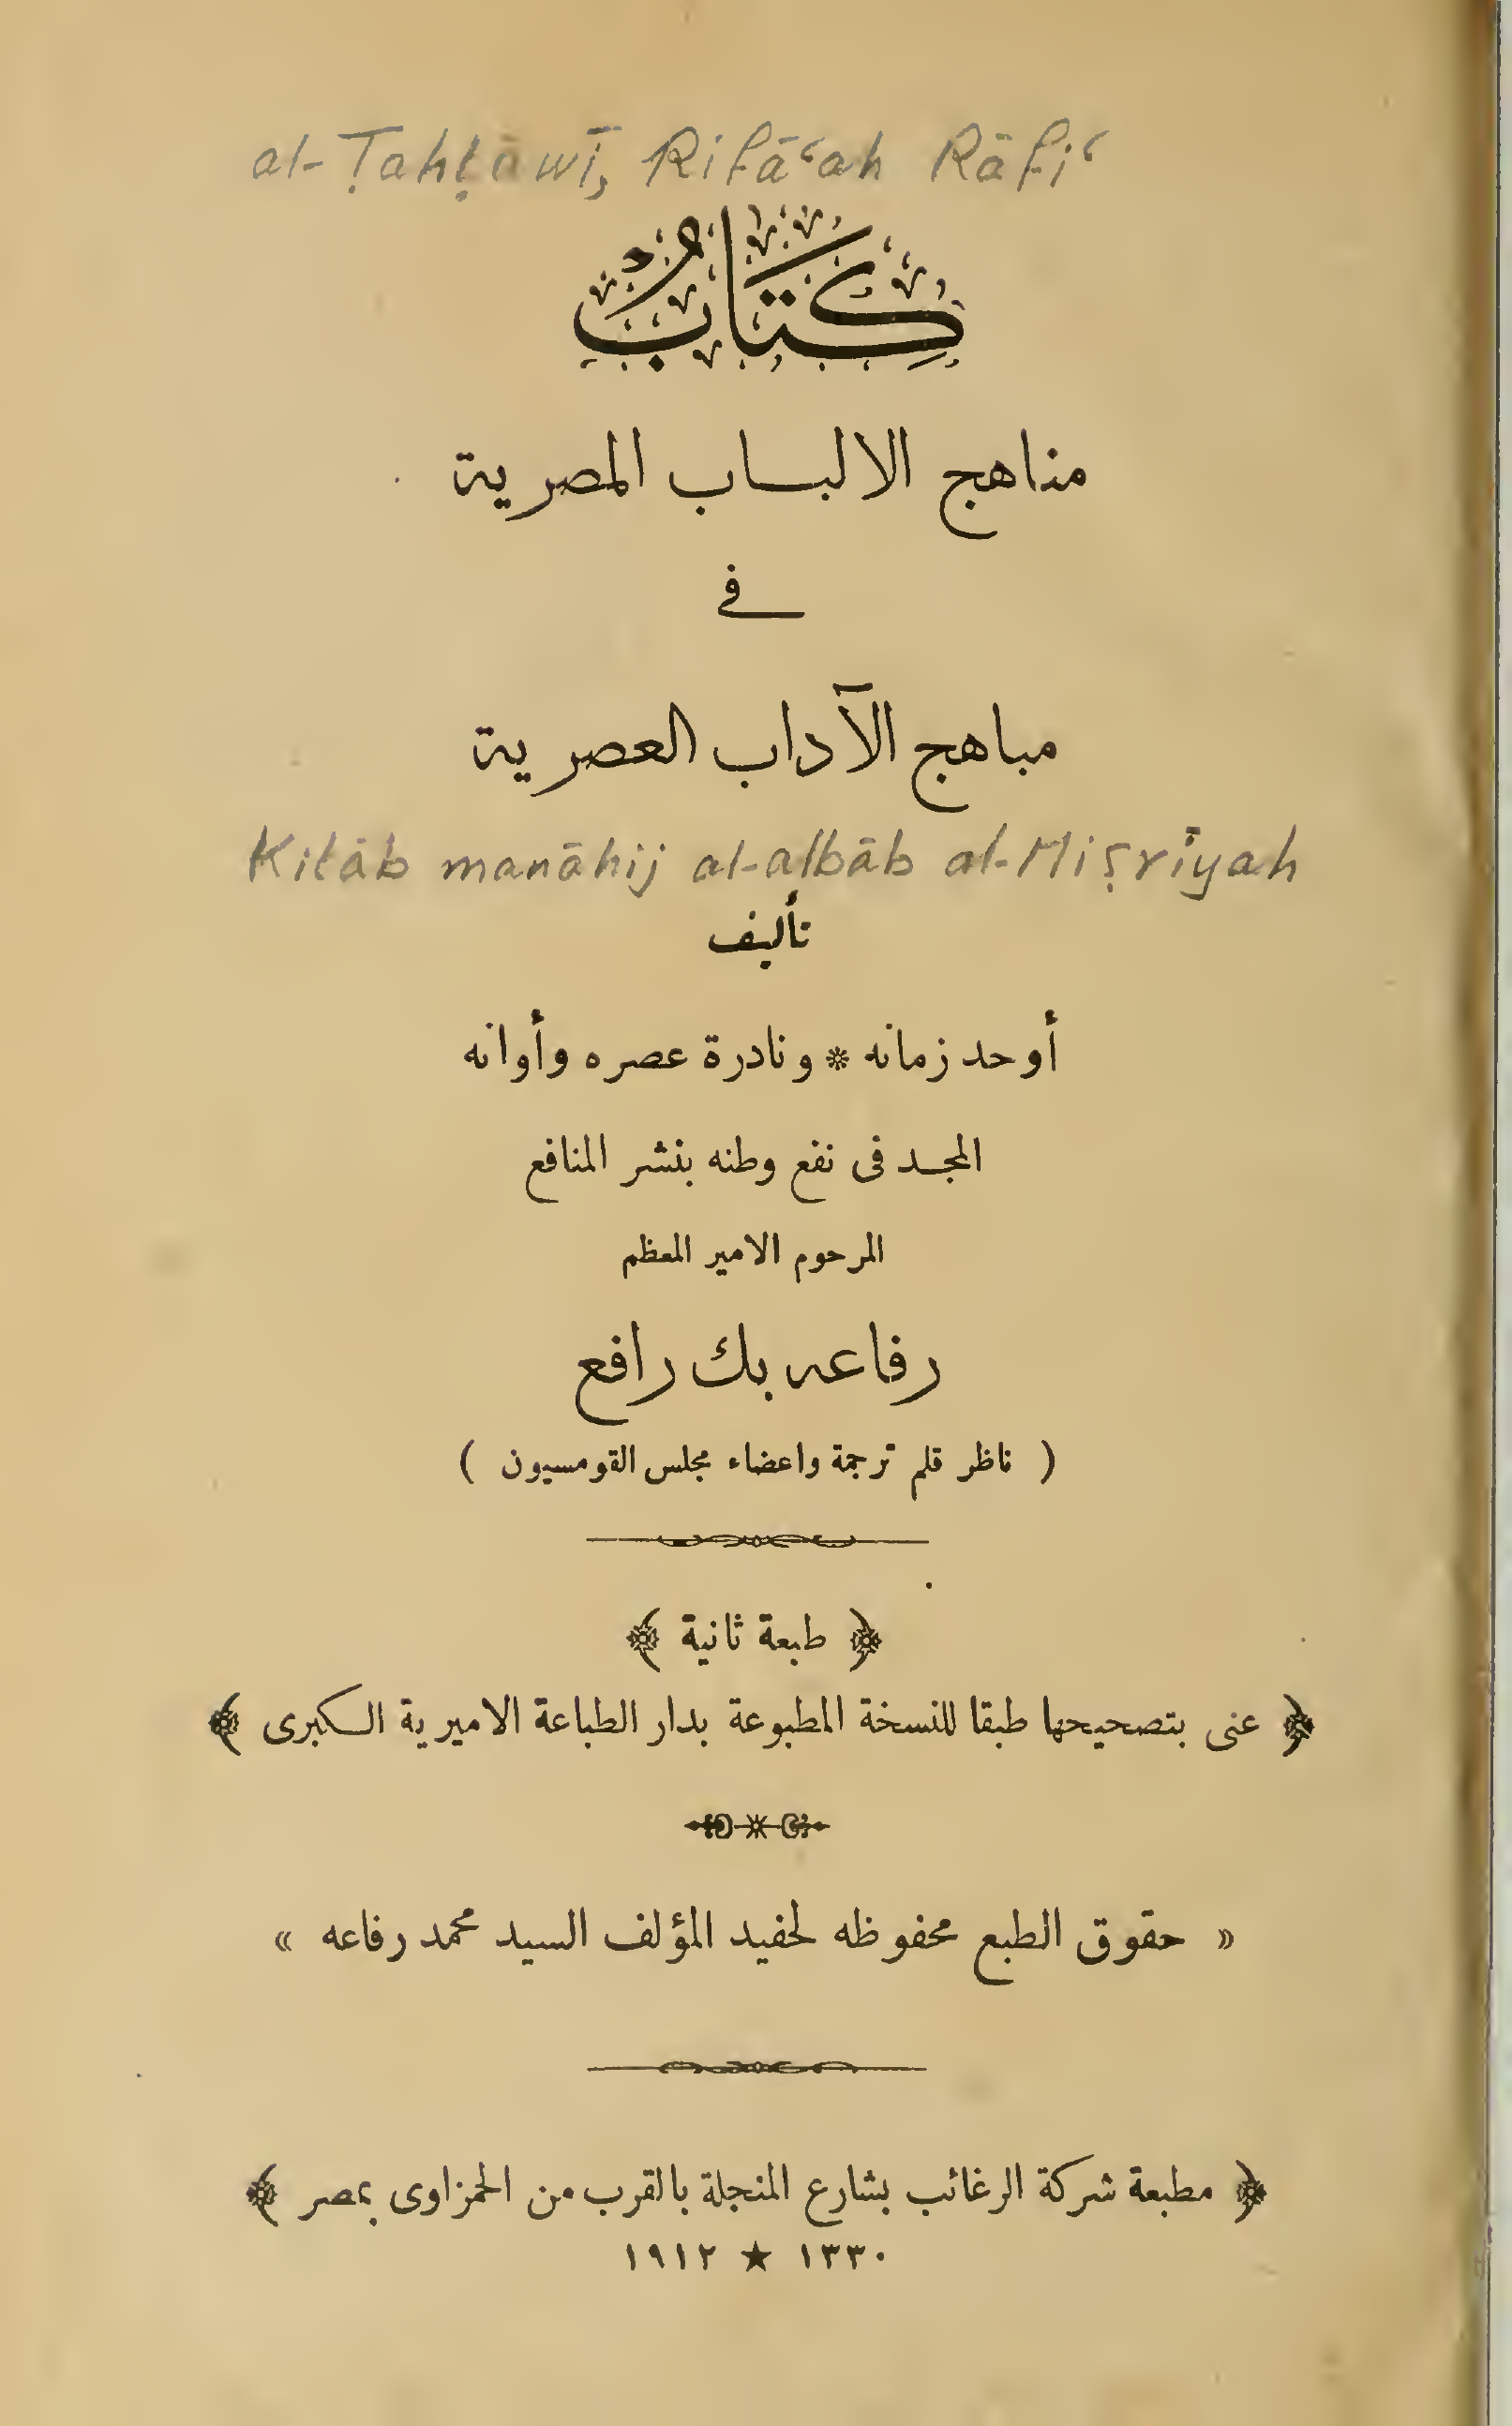 al-Ṭahṭāwī, Rifāʿah Rāfiʿ
كِتَابُ
مناهج الالباب المصرية
في
مباهج الآداب العصرية
Kitāb manāhij al-albāb al-Miṣrīyah
تأليف
أوحد زمانه * ونادرة عصره وأوانه
المجد فى نفع وطنه بنشر المنافع
المرحوم الامير المعظم
رفاعه بك رافع
( ناظر قلم ترجمة واعضاء مجلس القومسيون )
﴿ طبعة ثانية ﴾
﴿ عنى بتصحيحها طبقا للنسخة المطبوعة بدار الطباعة الاميرية الكبرى ﴾
« حقوق الطبع محفوظه لحفيد المؤلف السيد محمد رفاعه »
﴿ مطبعة شركة الرغائب بشارع المنجلة بالقرب من الحمزاوى بمصر ﴾
١٣٣٠ ★ ١٩١٢